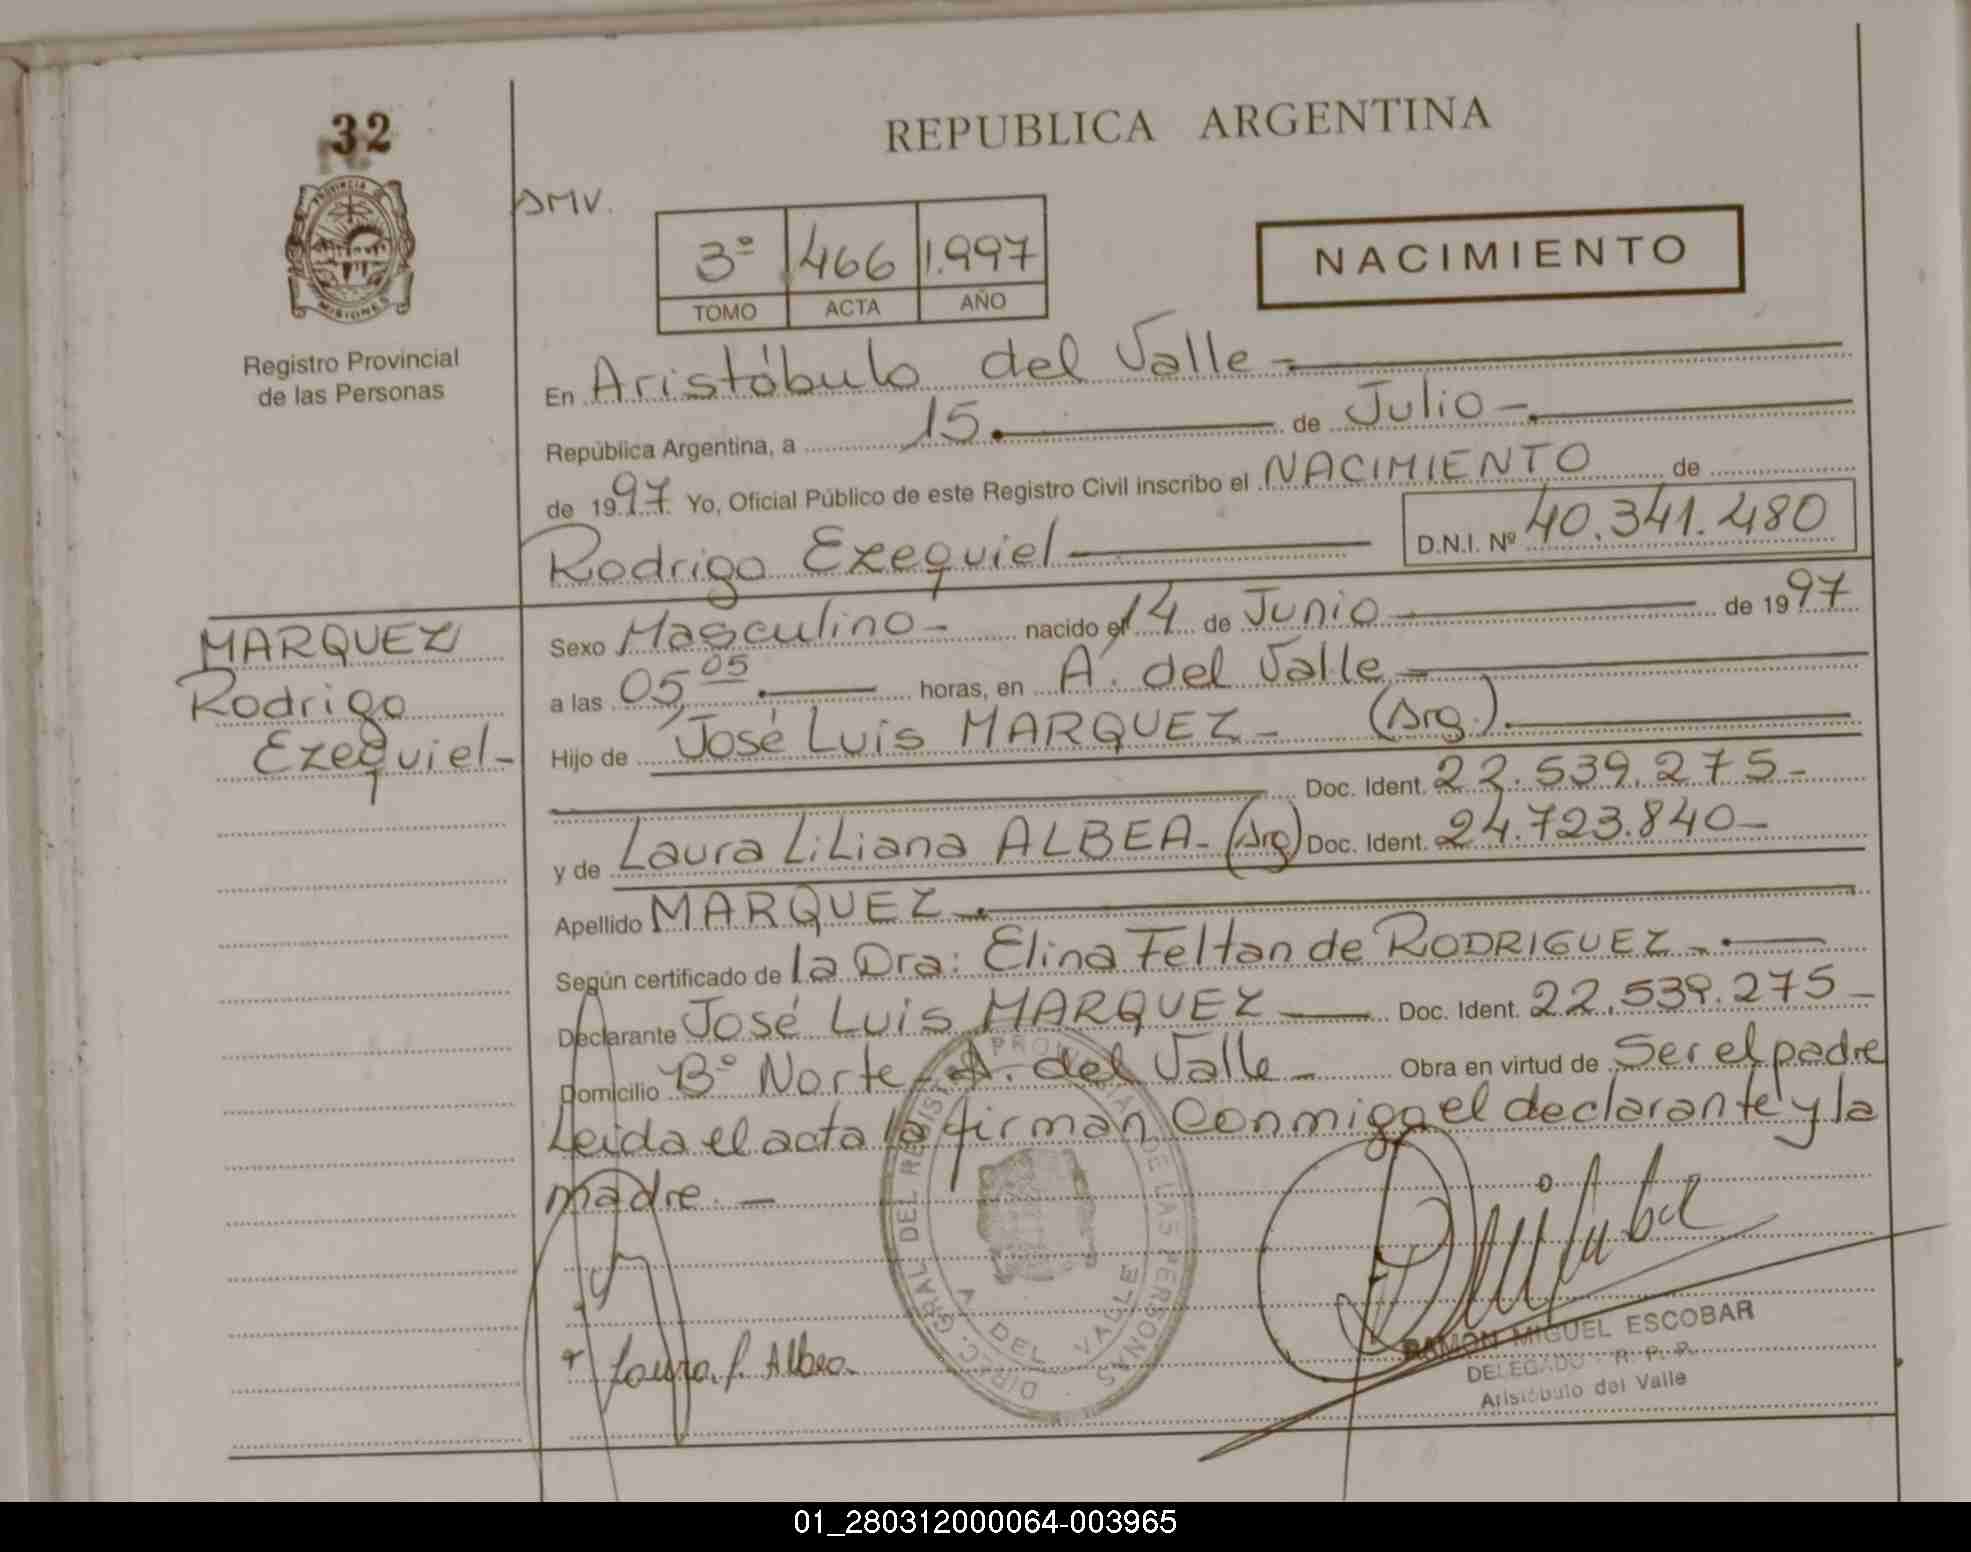 32
REPUBLICA ARGENTINA
PROVINCIA DE
MISIONES
Registro Provincial
de las Personas
SMV.
3º 466 1.997
TOMO ACTA AÑO
NACIMIENTO
En Aristóbulo del Valle -
República Argentina, a 15 de Julio -
de 1997 Yo, Oficial Público de este Registro Civil inscribo el NACIMIENTO de
Rodrigo Ezequiel D.N.I. Nº 40.341.480
MARQUEZ
Rodrigo
Ezequiel-
Sexo Masculino- nacido el 14 de Junio de 1997
a las 05,05 horas, en A. del Valle
Hijo de José Luis MARQUEZ - (Arg.)
Doc. Ident. 22.539.275-
y de Laura Liliana ALBEA- (Arg) Doc. Ident. 24.723.840-
Apellido MARQUEZ -
Según certificado de la Dra: Elina Feltan de RODRIGUEZ -
Declarante José Luis MARQUEZ Doc. Ident. 22.539.275-
Domicilio Bº Norte - A. del Valle - Obra en virtud de Ser el padre
Leida el acta la firman Conmigo el declarante y la
madre. -
DIREC. GRAL DEL REGISTRO PROVINCIAL DE LAS PERSONAS
A. DEL VALLE
Laura L. Albea.
RAMON MIGUEL ESCOBAR
DELEGADO R. P. P.
Aristóbulo del Valle
01_280312000064-003965